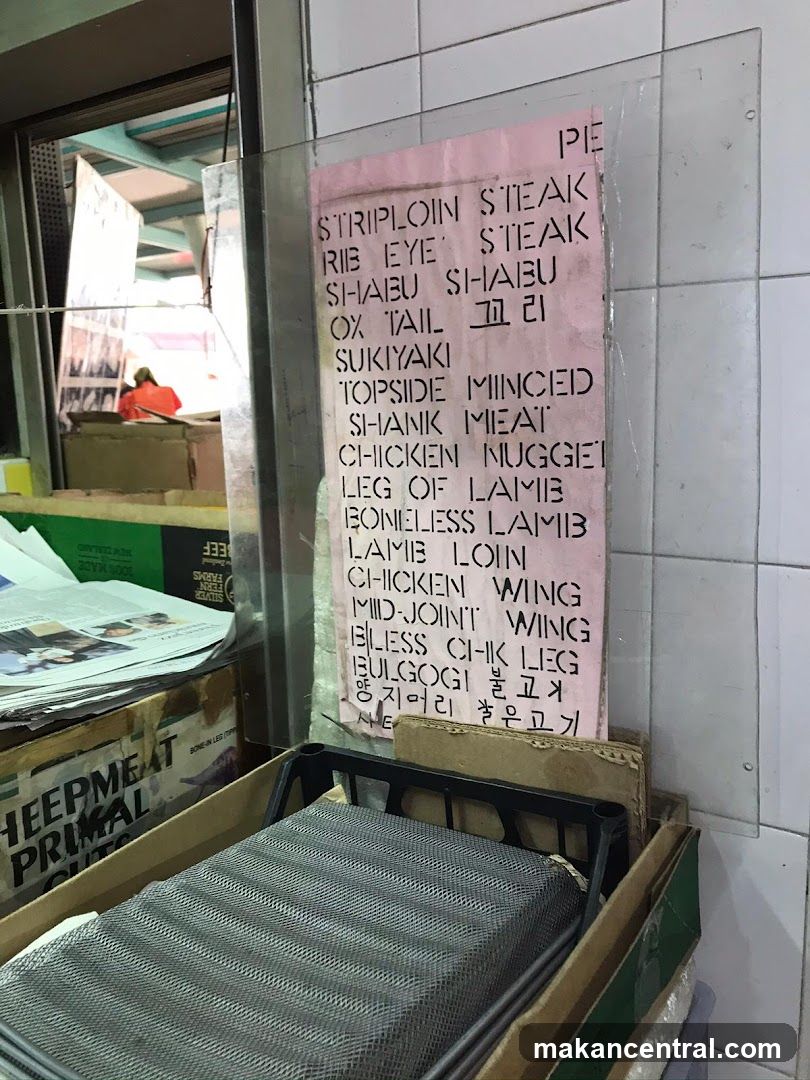 PE
STRIPLOIN STEAK
RIB EYE STEAK
SHABU SHABU
OX TAIL 꼬리
SUKIYAKI
TOPSIDE MINCED
SHANK MEAT
CHICKEN NUGGET
LEG OF LAMB
BONELESS LAMB
LAMB LOIN
CHICKEN WING
MID-JOINT WING
B\LESS CHK LEG
BULGOGI 불고기
양지머리
100% MADE
NEW ZEALAND
BEEF
SILVER
FERN
FARMS
BONE-IN LEG
HEEPMEAT
PRIMAL
CUTS
makancentral.com